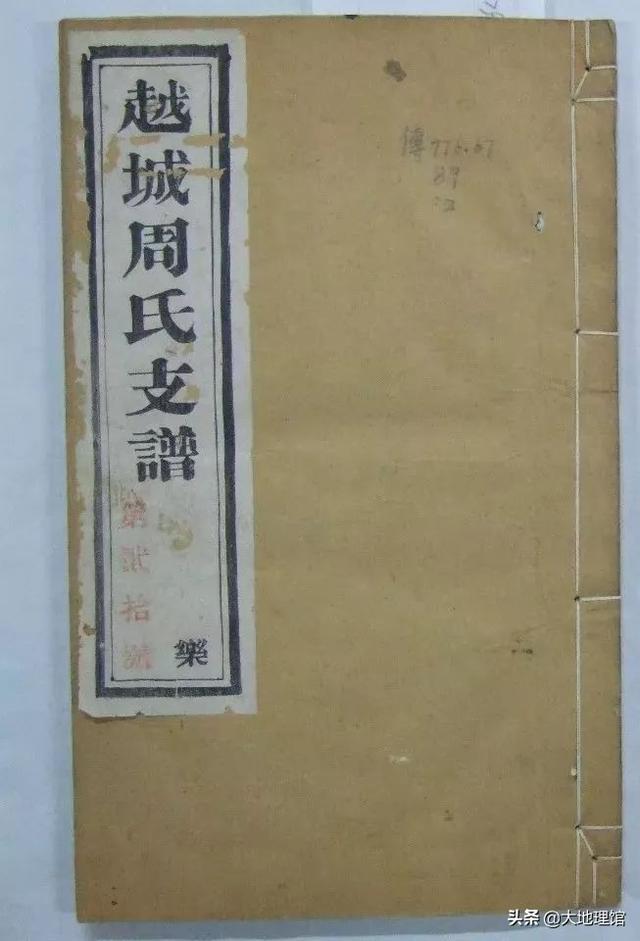 越城周氏支譜
第貳拾號
樂
傳 776.67
89
:2
头条 @大地理馆